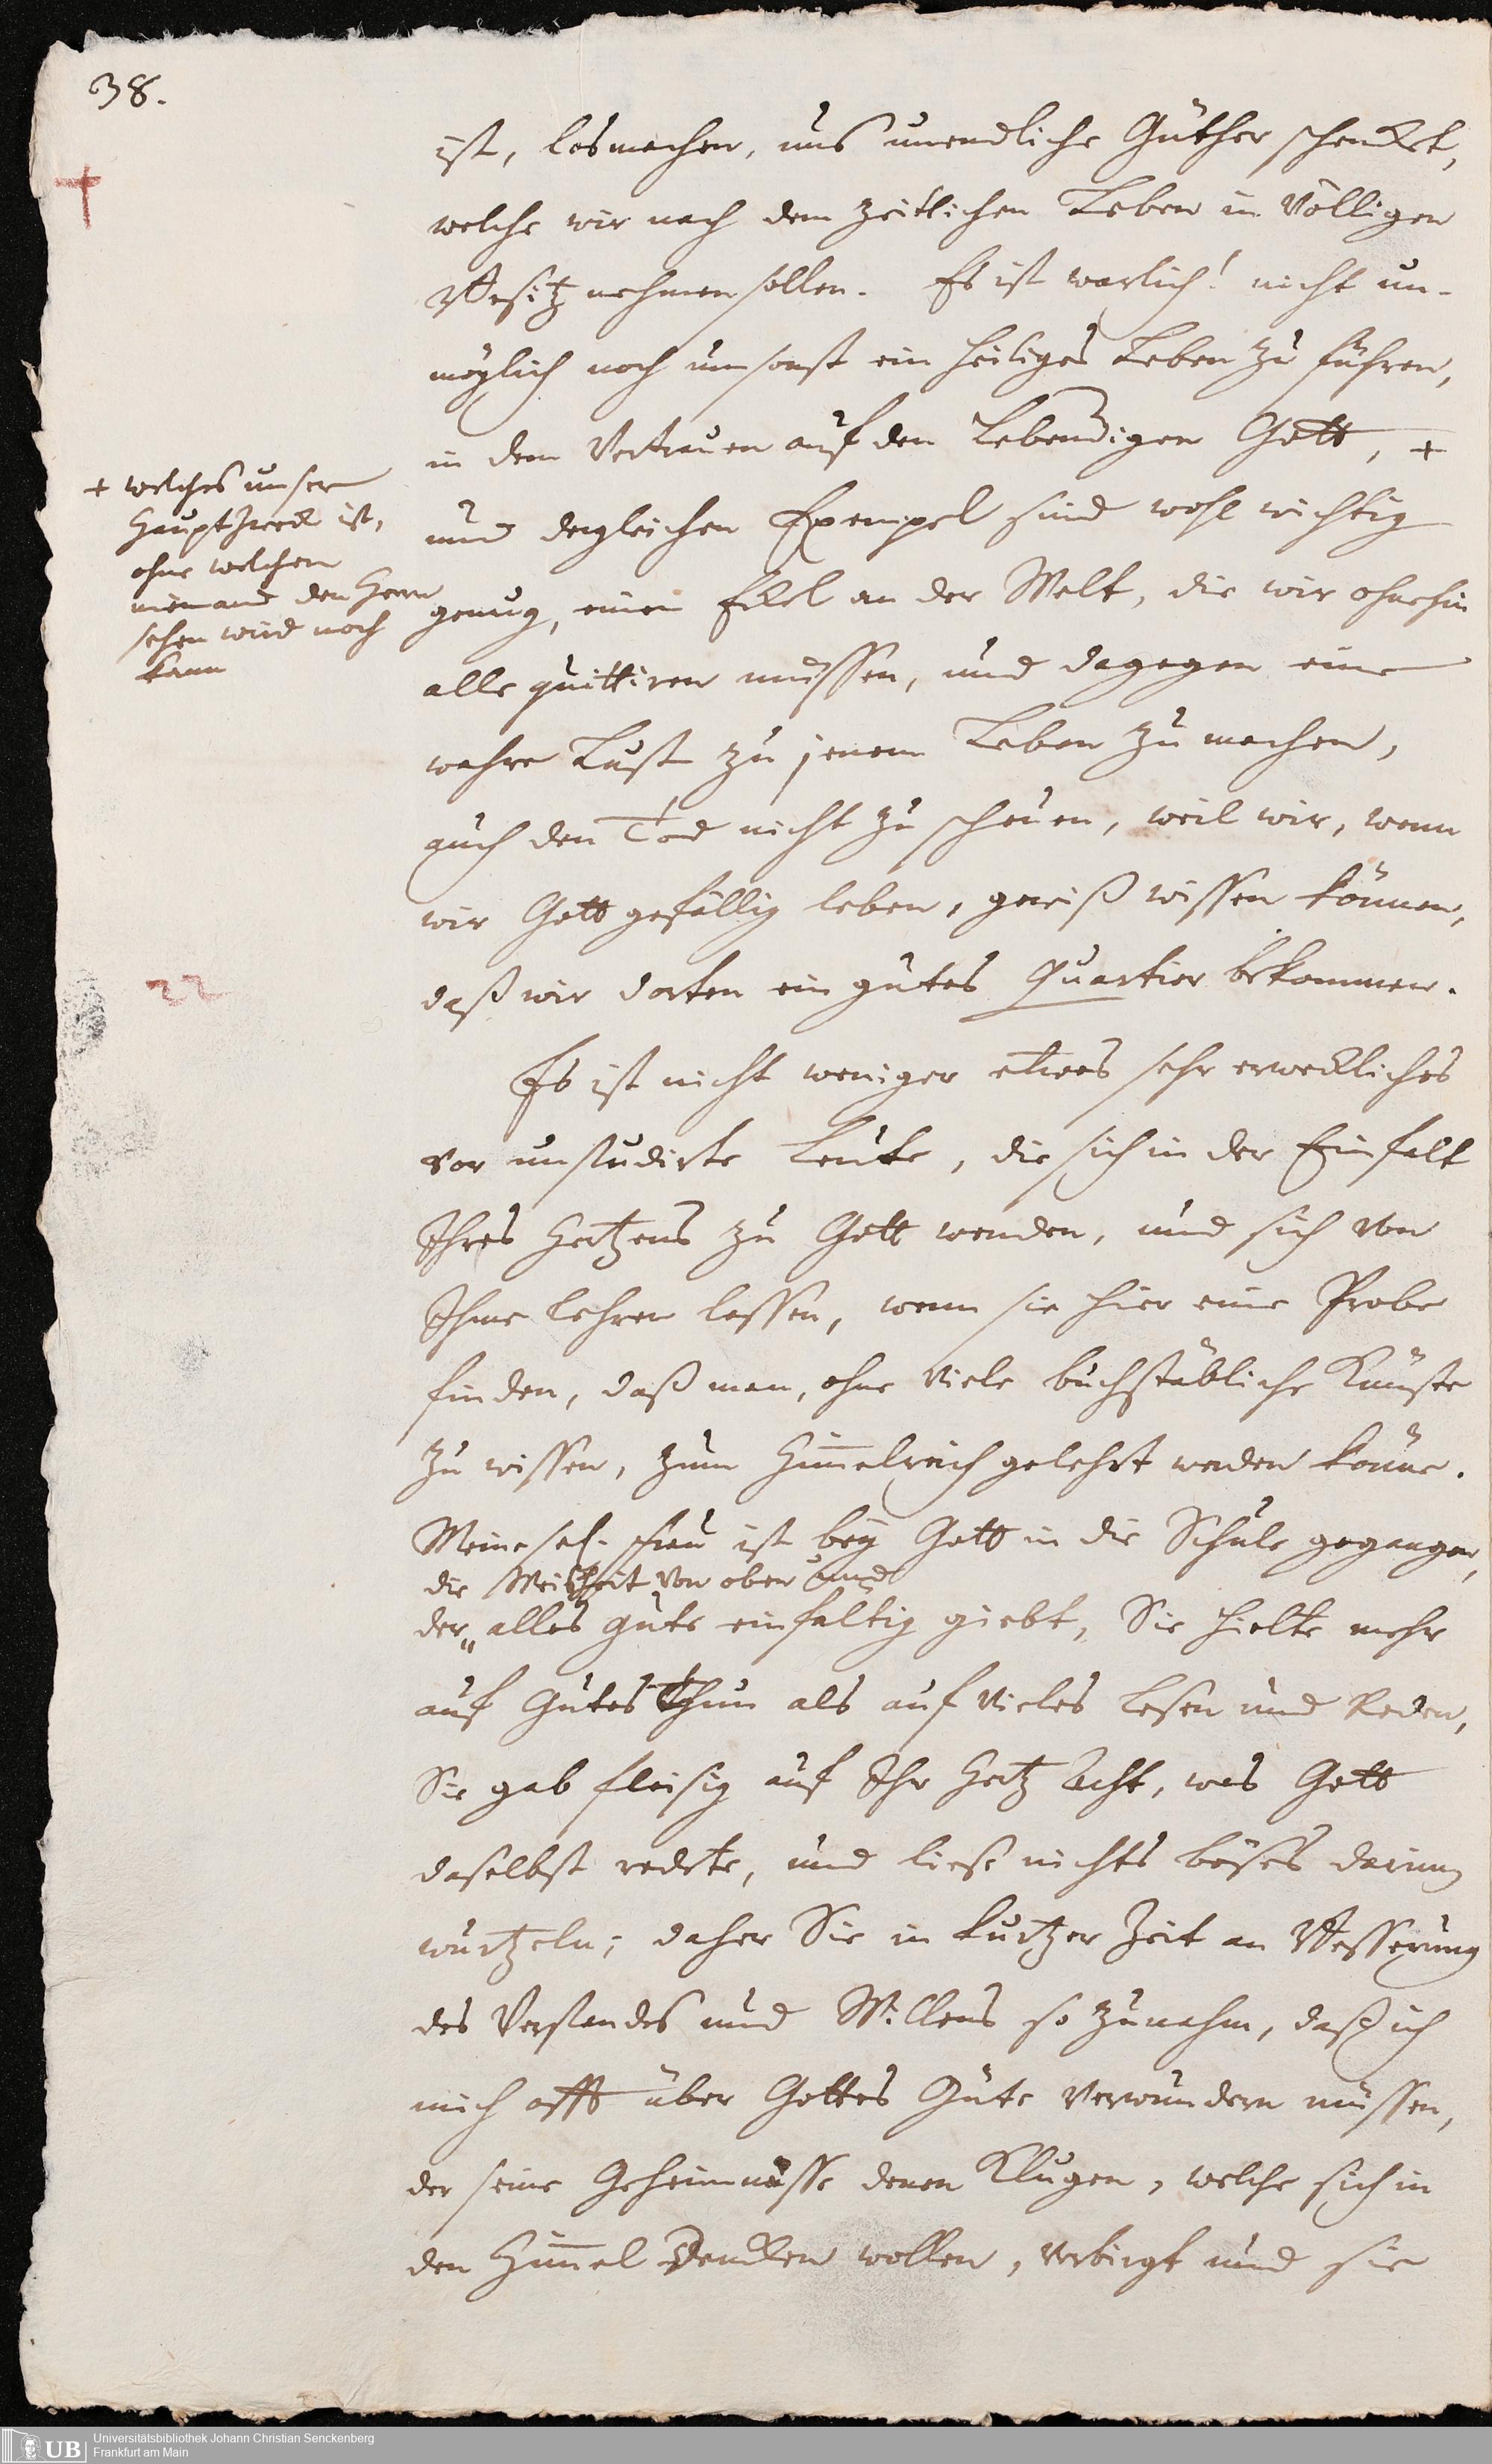 38.
ist, losmachen, uns unendliche Güther schenckt,
welche wir nach dem zeitlichen Leben in Völligen
Besitz nehmen sollen. Es ist warlich! nicht un-
möglich noch umsonst ein heiliges Leben zu führen,
in dem Vertrauen auf den Lebendigen Gott, +
+ welches unser
Hauptzweck ist,
ohne welchen
niemand den Herrn
sehen wird noch
kann
und dergleichen Exempel sind wohl wichtig
genug, einen Eckel an der Welt, die wir ohnehin
alle quittiren müssen, und dagegen eine
wahre Lust zu jenem Leben zu machen,
auch den Tod nicht zu scheuen, weil wir, wenn
wir Gott gefällig leben, gewiß wissen können,
daß wir dorten ein gutes Quartier bekommen.
22
Es ist nicht weniger etwas sehr erweckliches
vor unstudirte Leute, die sich in der Einfalt
Ihres Hertzens zu Gott wenden, und sich von
Ihme lehren lassen, wenn sie hier eine Probe
finden, daß man, ohne viele buchstäbliche Künste
zu wissen, zum Him̅elreich gelehrt werden könne.
Meine sel. Frau ist bey Gott in die Schule gegangen,
die Weisheit von oben und
der „ alles gute einfältig giebt, Sie hielte mehr
auf Gutes Thun als auf vieles Lesen und Reden,
Sie gab fleisig auf Ihr Hertz Acht, was Gott
daselbst redete, und liese nichts böses darinn
wurtzeln; daher Sie in kurtzer Zeit an Besserung
des Verstandes und Willens so zunahm, daß ich
mich offt über Gottes Güte verwundern müssen,
der seine Geheimnüsse denen Klugen, welche sich in
den Him̅el dencken wollen, verbirgt und sie
Universitätsbibliothek Johann Christian Senckenberg
Frankfurt am Main
UB